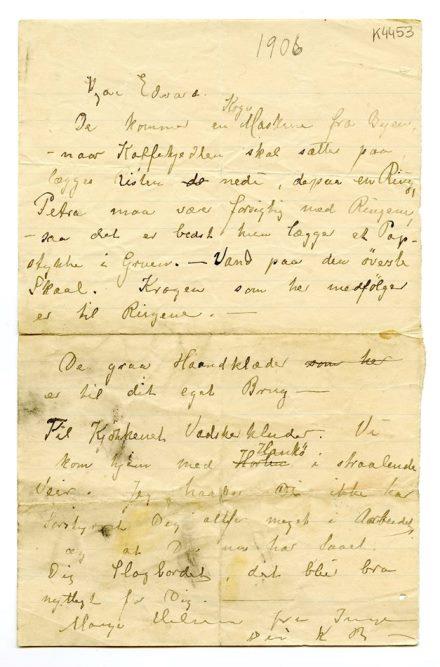 1906
K4453
Kjære Edvard.
Koge
De kommer en Maskine fra Byen
- naar Kaffekjedlen skal sættes paa
lægges risten do nede, depaa en Ring,
Petra maa være forsigtig med Ringene,
- saa det er bedst hun lægger et Pap-
stykke i Gruen. - Vand paa den øverste
Skaal. Krogen som her medfølger
er til Ringene. -
De graa Haandklæder som her
er til dit eget Brug -
Til Kjøkkenet Vadskekluder. Vi
kom hjem med Hankö i straalende
Veir. Jeg haaber Vi ikke har
forstyrret Dig altfor meget i Arbeidet,
og at Du nu har faaet
Dig Slagbordet, det blir bra
nyttigt for Dig.
Mange Hilsner fra Inger
Din K B -